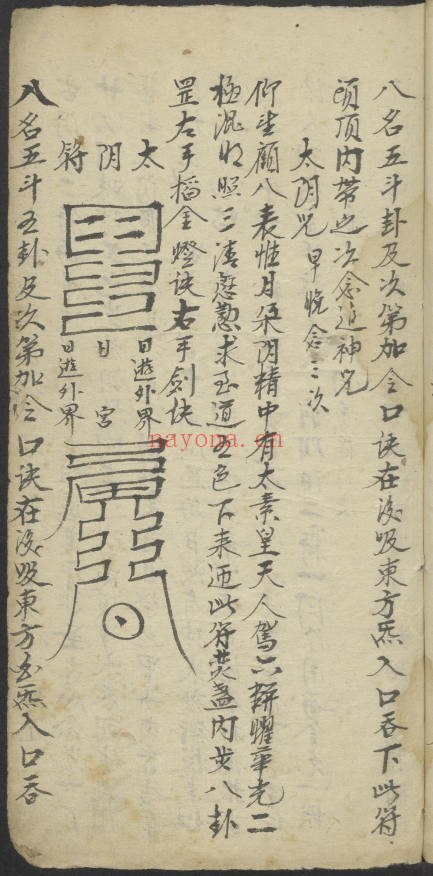 八名五斗卦及次第加令口诀在後吸東方炁入口吞下此符
頭頂内带之次念追神咒
太阴咒 早晚念三次
仰坐顧八表惟月朵阴精中有太素皇天人駕六軿耀華光二
極混明照三清慇懃求至道五色下来迊此符焚盏内步八卦
罡左手搯金燈诀右手劍诀
太阴符
日遊外界
日宫
日遊外界
八名五斗五卦及次第加令口诀在後吸東方炁入口吞
nayona.cn